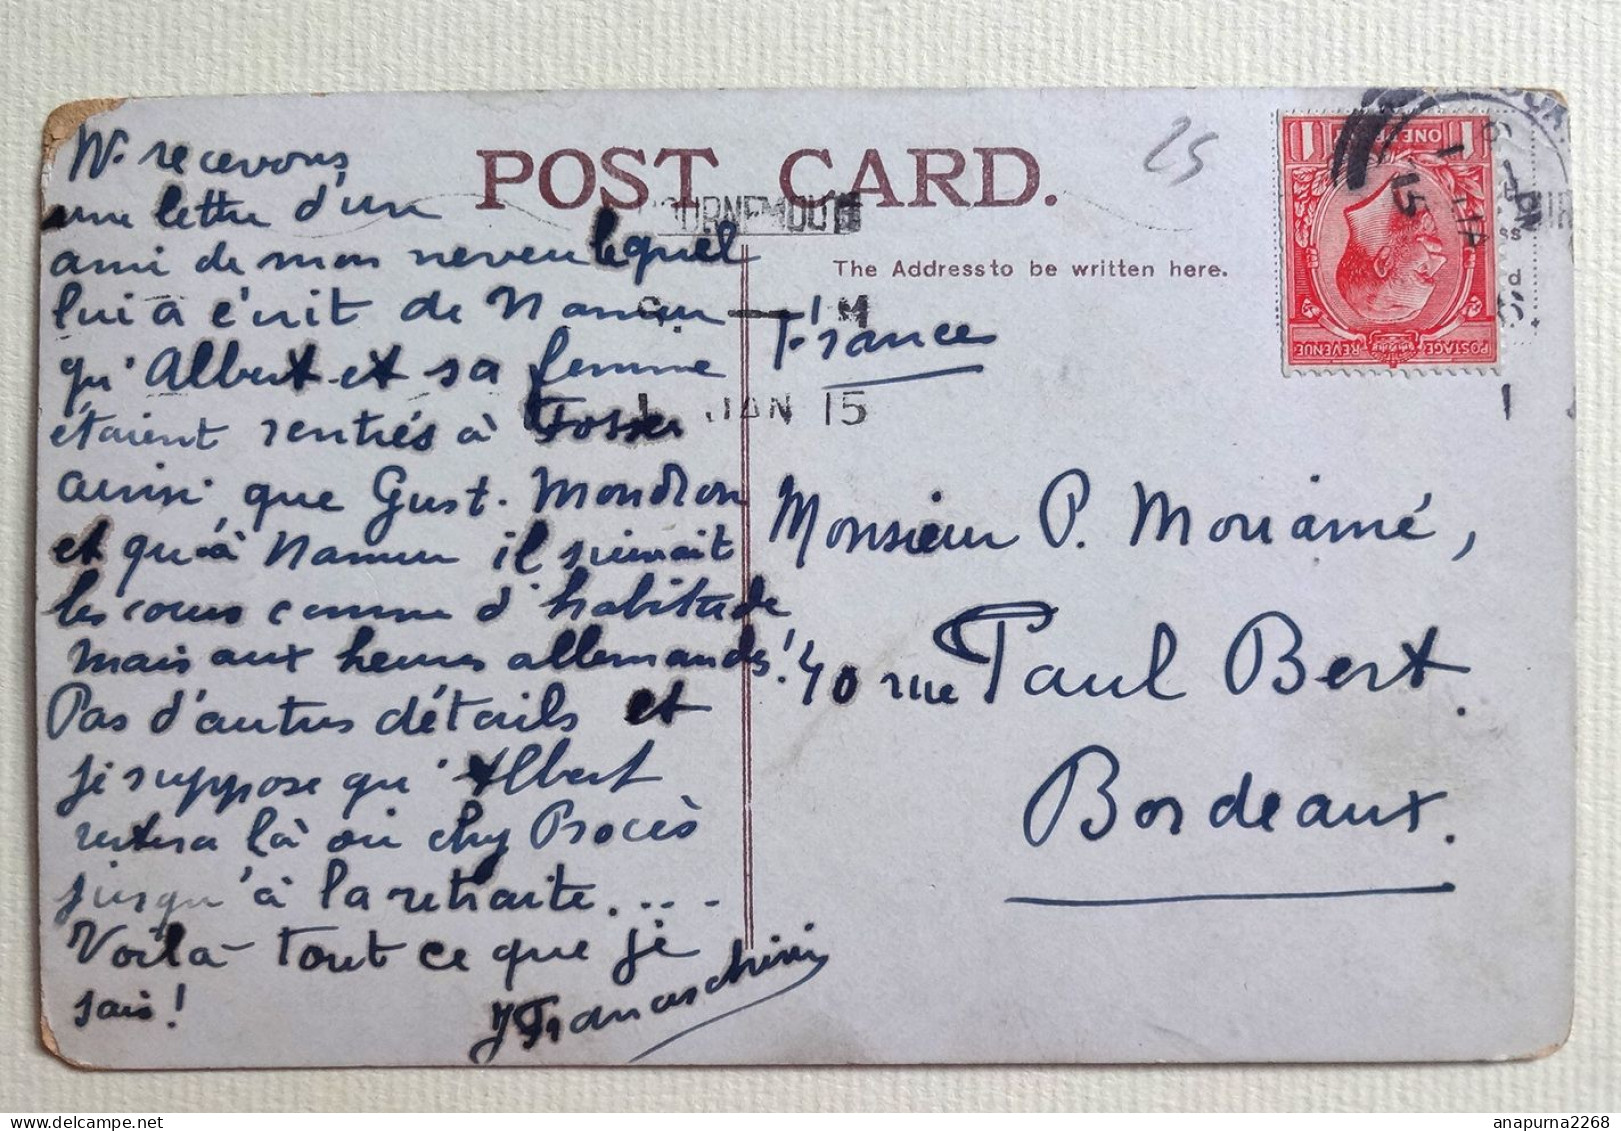 N. recevons
une lettre d'un
ami de mon neveu lequel
lui a écrit de Namur
qu'Albert et sa femme
étaient rentrés à Fosses
ainsi que Gust. Mondron
et qu'à Namur il suivait
les cours comme d'habitude
mais aux heures allemandes!
Pas d'autres détails et
je suppose qu'Albert
restera là ou chez Procès
jusqu'à la retraite....
Voilà tout ce que je
sais!
J Franceschini
POST CARD.
25
BOURNEMOUTH
The Address to be written here.
M
1 JAN 15
ONE PENNY
POSTAGE REVENUE
France
Monsieur P. Moriamé,
40 rue Paul Bert.
Bordeaux.
anapurna2268